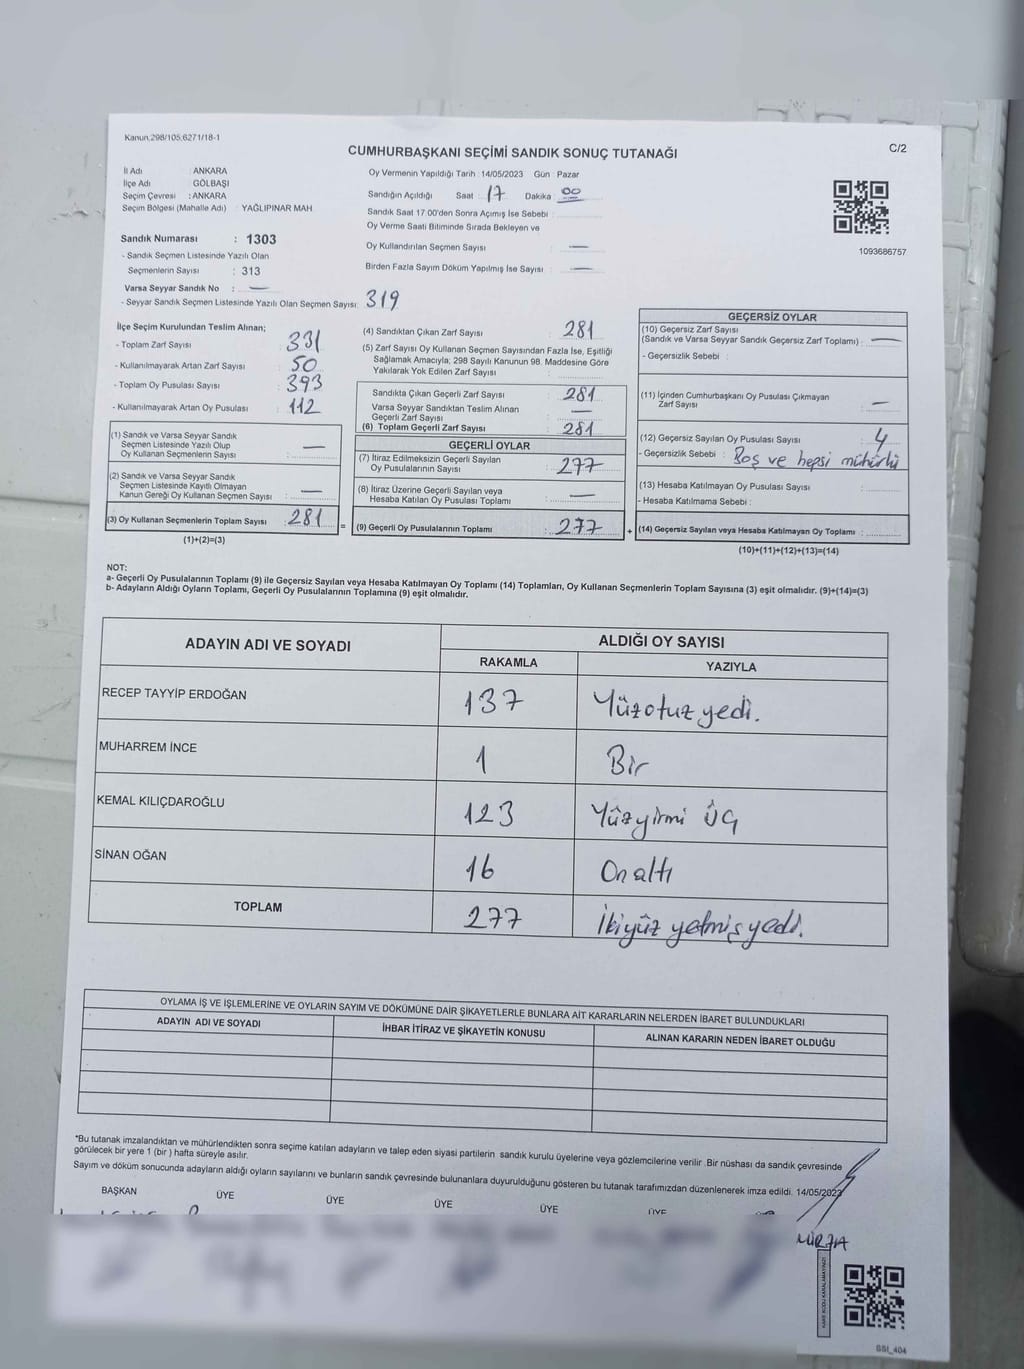 Kanun.298/105,6271/18-1
C/2
CUMHURBAŞKANI SEÇİMİ SANDIK SONUÇ TUTANAĞI
İl Adı : ANKARA
İlçe Adı : GÖLBAŞI
Seçim Çevresi : ANKARA
Seçim Bölgesi (Mahalle Adı) : YAĞLIPINAR MAH
Sandık Numarası : 1303
- Sandık Seçmen Listesinde Yazılı Olan
Seçmenlerin Sayısı : 313
Varsa Seyyar Sandık No : —
- Seyyar Sandık Seçmen Listesinde Yazılı Olan Seçmen Sayısı: 319
Oy Vermenin Yapıldığı Tarih :14/05/2023 Gün : Pazar
Sandığın Açıldığı Saat : 17 Dakika 00
Sandık Saat 17:00'den Sonra Açımış İse Sebebi :
Oy Verme Saati Bitiminde Sırada Bekleyen ve
Oy Kullandırılan Seçmen Sayısı : —
Birden Fazla Sayım Döküm Yapılmış İse Sayısı : —
1093686757
İlçe Seçim Kurulundan Teslim Alınan;
- Toplam Zarf Sayısı : 331
- Kullanılmayarak Artan Zarf Sayısı : 50
- Toplam Oy Pusulası Sayısı : 393
- Kullanılmayarak Artan Oy Pusulası : 112
(1) Sandık ve Varsa Seyyar Sandık
Seçmen Listesinde Yazılı Olup
Oy Kullanan Seçmenlerin Sayısı : —
(2) Sandık ve Varsa Seyyar Sandık
Seçmen Listesinde Kayıtlı Olmayan
Kanun Gereği Oy Kullanan Seçmen Sayısı : —
(3) Oy Kullanan Seçmenlerin Toplam Sayısı : 281 =
(1)+(2)=(3)
(4) Sandıktan Çıkan Zarf Sayısı : 281
(5) Zarf Sayısı Oy Kullanan Seçmen Sayısından Fazla İse, Eşitliği
Sağlamak Amacıyla, 298 Sayılı Kanunun 98. Maddesine Göre
Yakılarak Yok Edilen Zarf Sayısı :
Sandıkta Çıkan Geçerli Zarf Sayısı : 281
Varsa Seyyar Sandıktan Teslim Alınan
Geçerli Zarf Sayısı : —
(6) Toplam Geçerli Zarf Sayısı : 281
GEÇERLİ OYLAR
(7) İtiraz Edilmeksizin Geçerli Sayılan
Oy Pusulalarının Sayısı : 277
(8) İtiraz Üzerine Geçerli Sayılan veya
Hesaba Katılan Oy Pusulası Toplamı : —
(9) Geçerli Oy Pusulalarının Toplamı : 277 +
GEÇERSİZ OYLAR
(10) Geçersiz Zarf Sayısı
(Sandık ve Varsa Seyyar Sandık Geçersiz Zarf Toplamı) : —
- Geçersizlik Sebebi :
(11) İçinden Cumhurbaşkanı Oy Pusulası Çıkmayan
Zarf Sayısı : —
(12) Geçersiz Sayılan Oy Pusulası Sayısı : 4
- Geçersizlik Sebebi : Boş ve hepsi mühürlü
(13) Hesaba Katılmayan Oy Pusulası Sayısı :
- Hesaba Katılmama Sebebi :
(14) Geçersiz Sayılan veya Hesaba Katılmayan Oy Toplamı :
(10)+(11)+(12)+(13)=(14)
NOT:
a- Geçerli Oy Pusulalarının Toplamı (9) ile Geçersiz Sayılan veya Hesaba Katılmayan Oy Toplamı (14) Toplamları, Oy Kullanan Seçmenlerin Toplam Sayısına (3) eşit olmalıdır. (9)+(14)=(3)
b- Adayların Aldığı Oyların Toplamı, Geçerli Oy Pusulalarının Toplamına (9) eşit olmalıdır.
ADAYIN ADI VE SOYADI
ALDIĞI OY SAYISI
RAKAMLA YAZIYLA
RECEP TAYYİP ERDOĞAN 137 Yüzotuz yedi.
MUHARREM İNCE 1 Bir
KEMAL KILIÇDAROĞLU 123 Yüzyirmi üç
SİNAN OĞAN 16 On altı
TOPLAM 277 İkiyüz yetmiş yedi.
OYLAMA İŞ VE İŞLEMLERİNE VE OYLARIN SAYIM VE DÖKÜMÜNE DAİR ŞİKAYETLERLE BUNLARA AİT KARARLARIN NELERDEN İBARET BULUNDUKLARI
ADAYIN ADI VE SOYADI İHBAR İTİRAZ VE ŞİKAYETİN KONUSU ALINAN KARARIN NEDEN İBARET OLDUĞU
*Bu tutanak imzalandıktan ve mühürlendikten sonra seçime katılan adayların ve talep eden siyasi partilerin sandık kurulu üyelerine veya gözlemcilerine verilir .Bir nüshası da sandık çevresinde
görülecek bir yere 1 (bir ) hafta süreyle asılır.
Sayım ve döküm sonucunda adayların aldığı oyların sayılarını ve bunların sandık çevresinde bulunanlara duyurulduğunu gösteren bu tutanak tarafımızdan düzenlenerek imza edildi. 14/05/2023
BAŞKAN ÜYE ÜYE ÜYE ÜYE ÜYE
KARE KODU KARALAMAYINIZ!